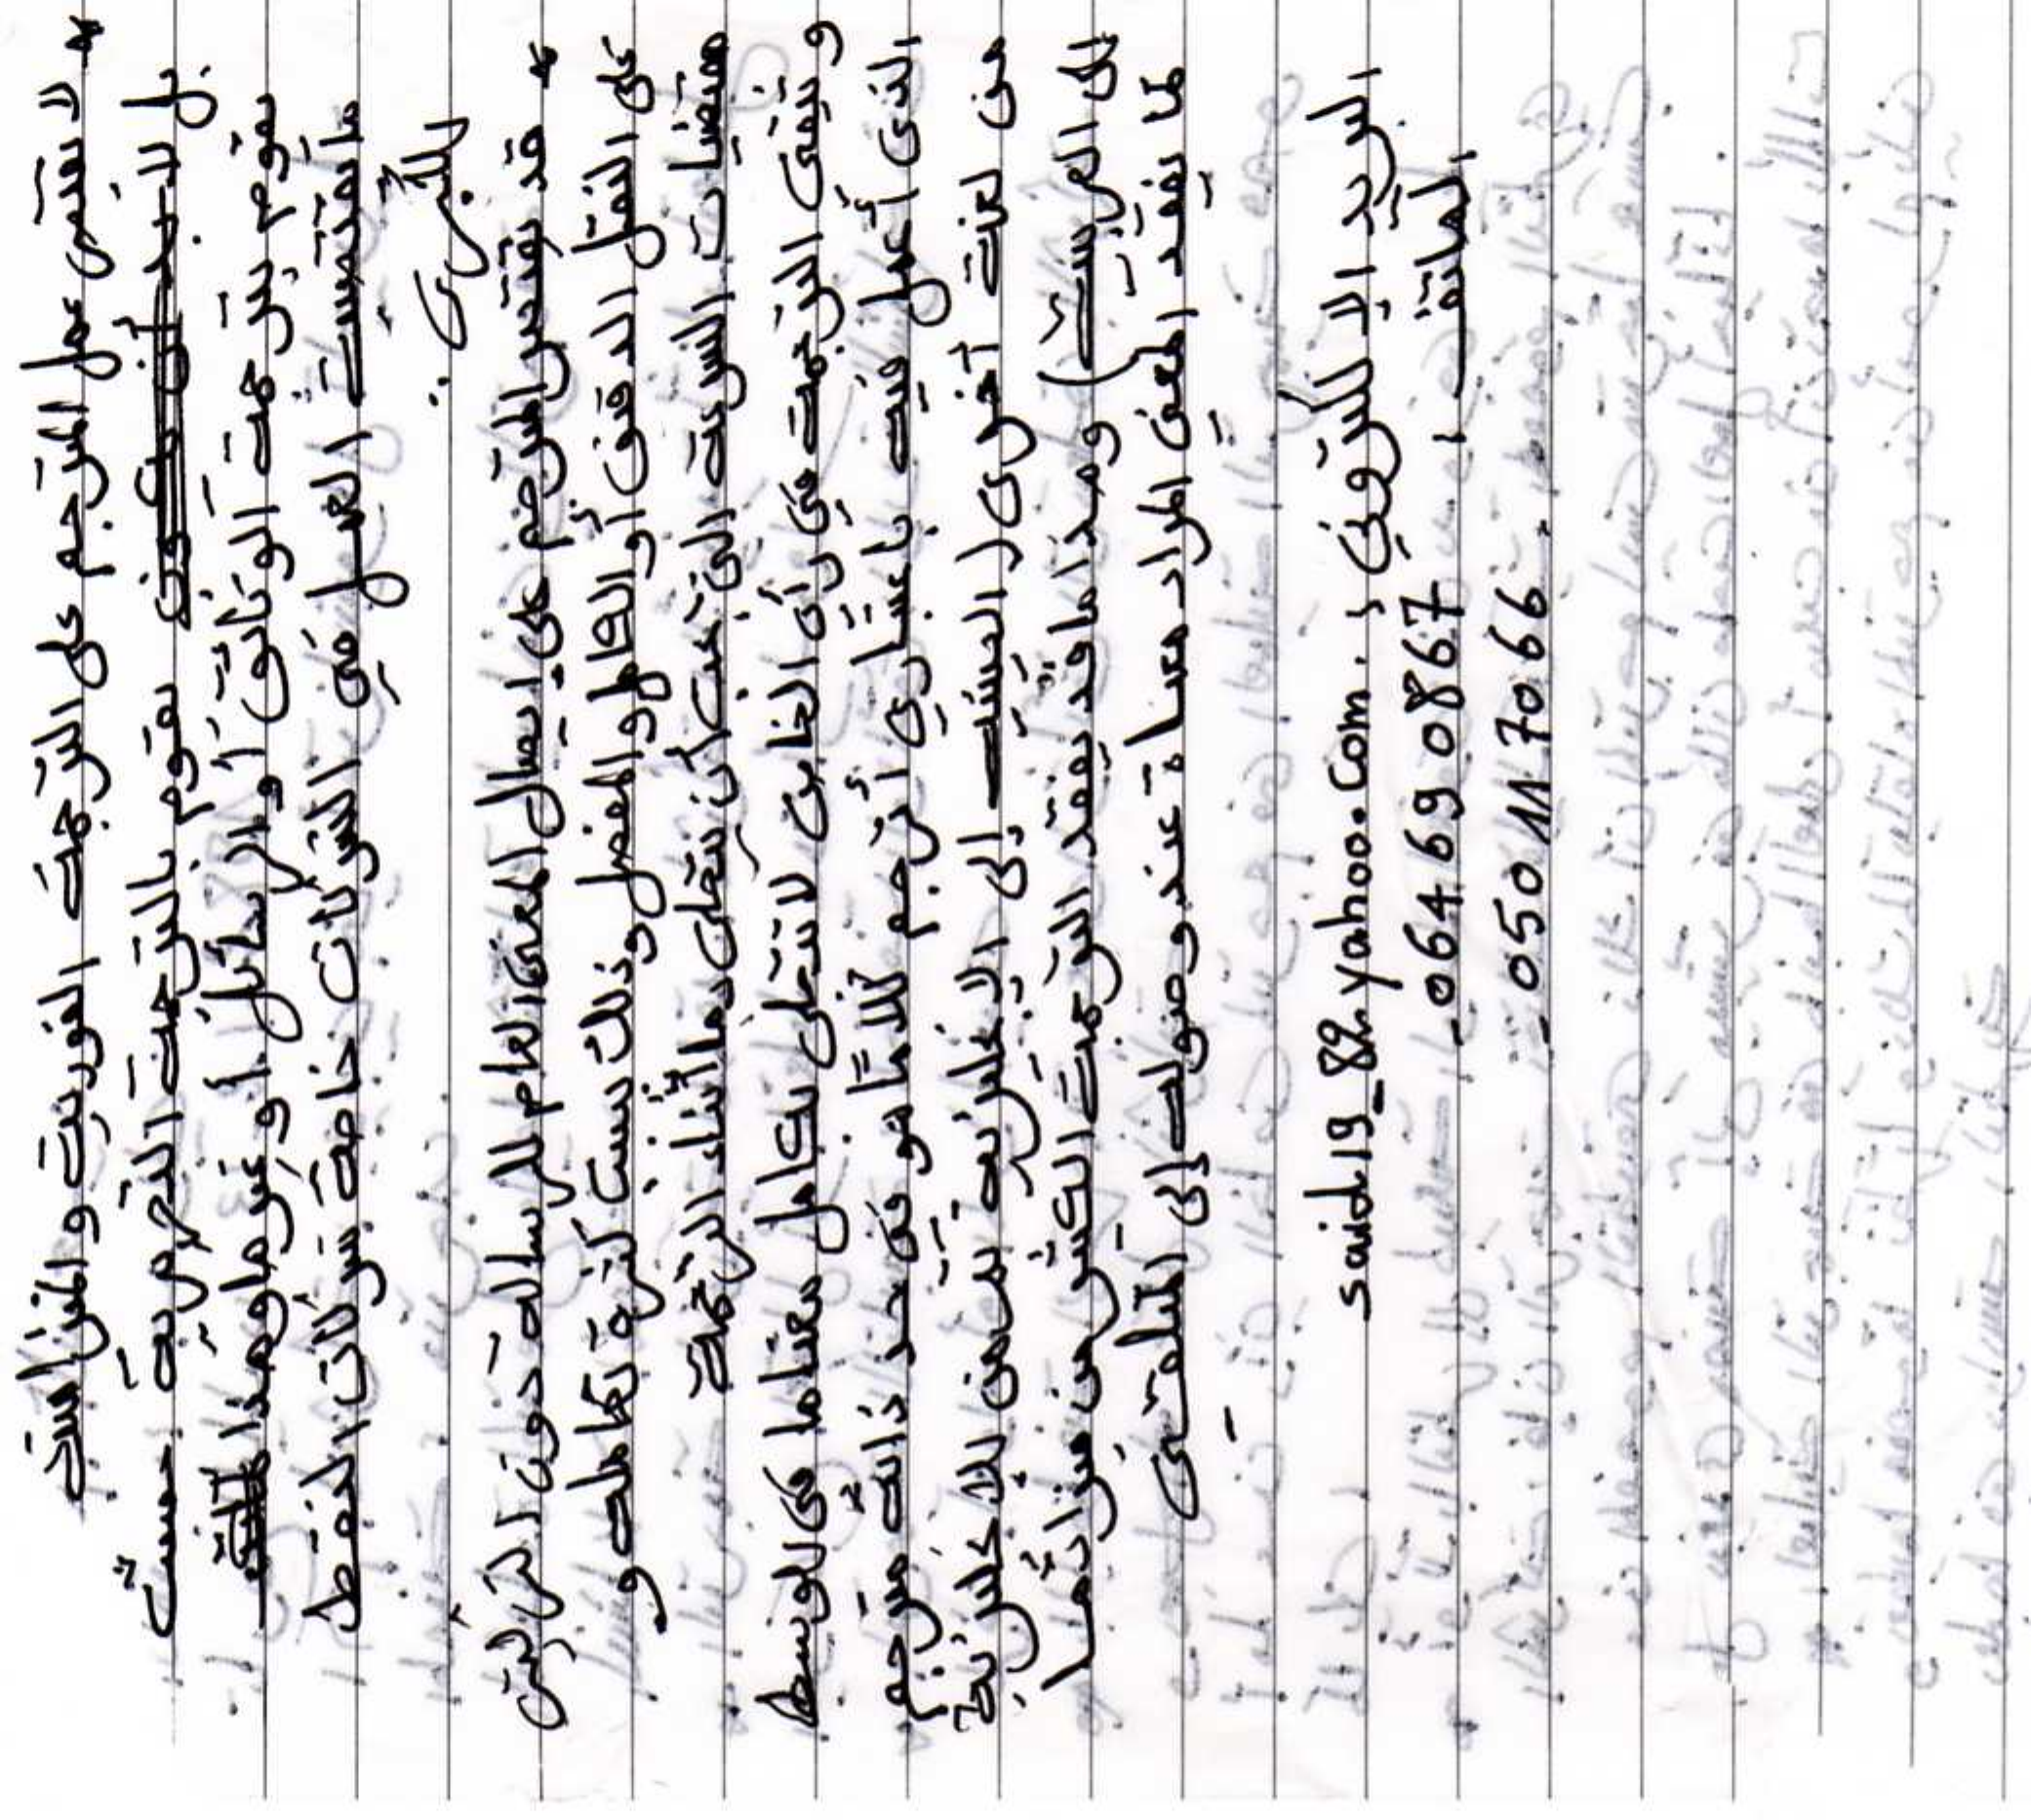 * لا يقتصر عمل المترجم على الترجمة الفورية والميزانسية
بل لابد أن يكون يقوم بالترجمة التحريرية حيث
يقوم بترجمة الوثائق أو الرسائل أو غيرها وهذا
ما يقتضيه العمل في الشركات خاصة شركات النفط
الكبرى.
* قد يقتصر المترجم على إيصال المعنى العام للرسالة دون التركيز
على النقل الدقيق أو الكامل والمفصل وذلك بسبب كثرة تكاملها و
مقتضيات السرعة التي يجب أن يتحلى بها أثناء الترجمة
وتبقى الترجمة في رأي الخاص لا تتحلى بكامل معناها في الوسط
الذي أعمل فيه باعتباري أترجم كلاما هو في حد ذاته مترجم
من لغة أخرى (الصينية إلى الإنجليزية ثم من الإنجليزية
إلى العربية) وهذا ما قد يفقد الترجمة الكثير من ميزاتها
كما يفقد المعنى المراد معناه عند وصوله إلى المتلقي
البريد الالكتروني: said19_82.yahoo.com
الهاتف: - 064 69 08 67
- 050 11 70 66.